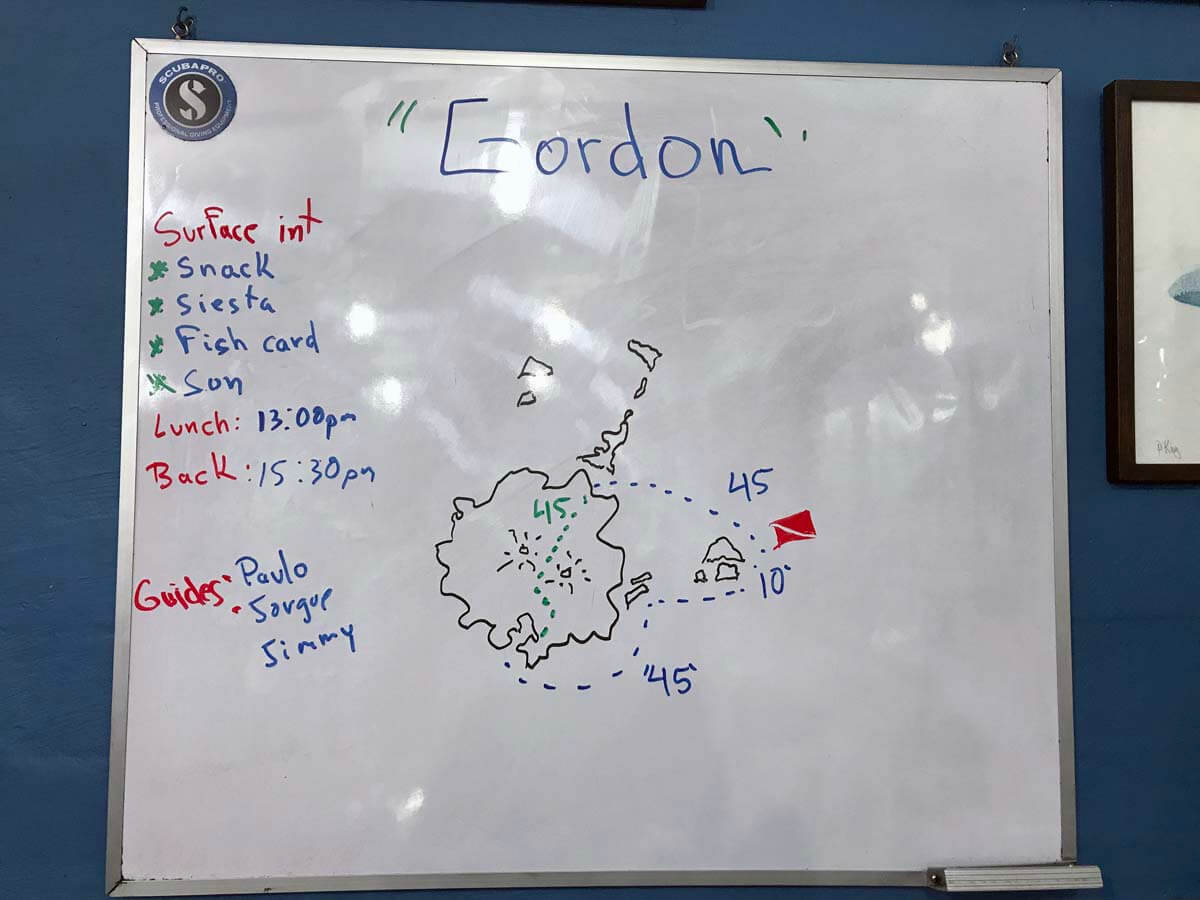 SCUBAPRO
S
PROFESSIONAL DIVING EQUIPMENT
"Gordon"
Surface int
* Snack
* Siesta
* Fish card
* Sun
Lunch: 13:00pm
Back: 15:30pm
Guides: Paulo
Jorgue
Jimmy
45'
45
10'
'45'
P King